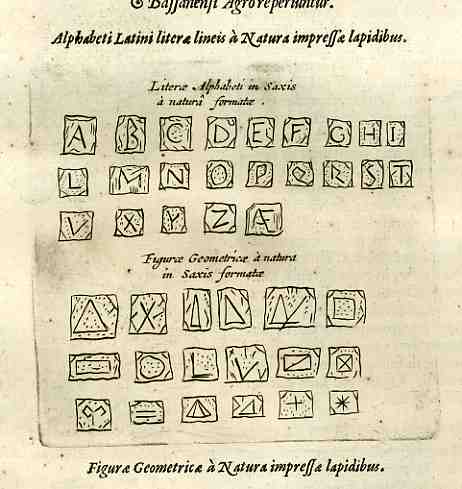 & Bassanensi Agro reperiuntur.
Alphabeti Latini literæ lineis à Natura impressæ lapidibus.
Literæ Alphabeti in Saxis
à naturâ formatæ.
A B C D E F G H I
L M N O P Q R S T
V X Y Z Æ
Figuræ Geometricæ à natura
in Saxis formatæ
Figuræ Geometricæ à Natura impressæ lapidibus.